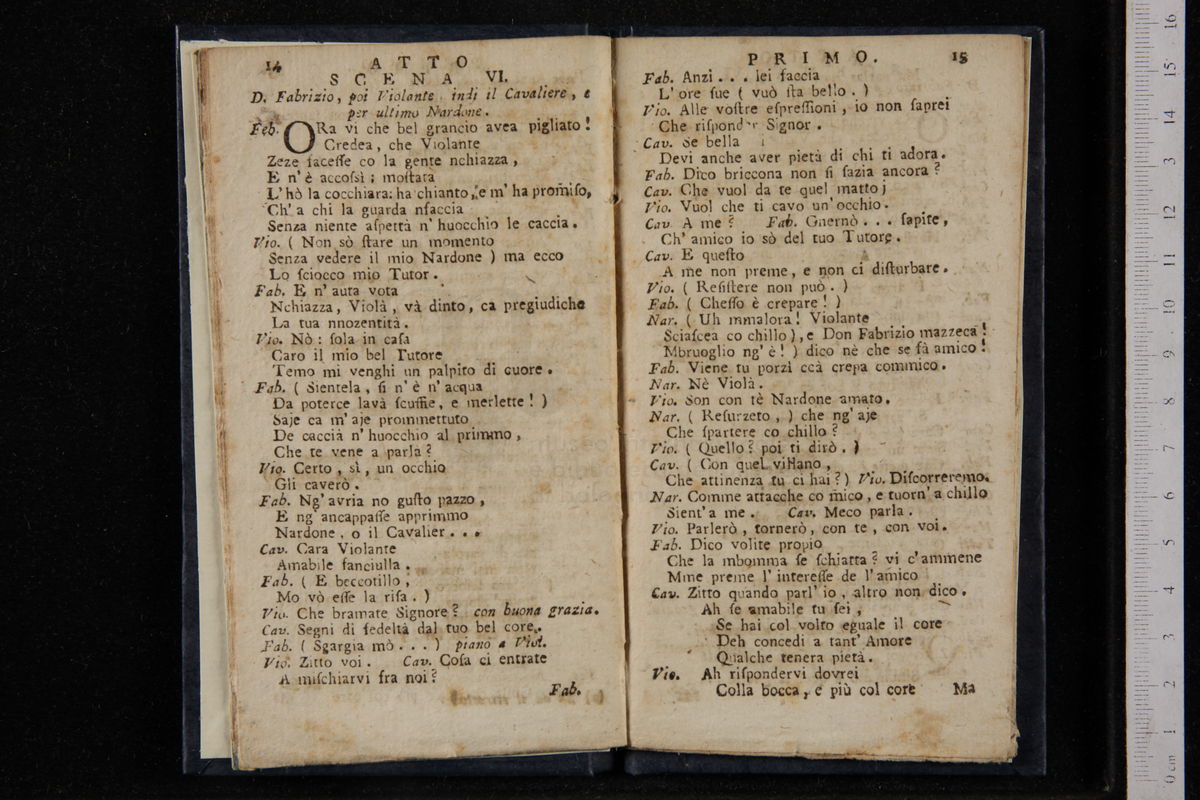 14 ATTO
SCENA VI.
D. Fabrizio, poi Violante indi il Cavaliere, e
per ultimo Nardone.
Feb. ORa vi che bel grancio avea pigliato!
Credea, che Violante
Zeze faceſſe co la gente nchiazza,
E n'è accoſsì; moſtara
L'hò la cocchiara: ha chianto, e m'ha promiſo,
Ch'a chi la guarda nfaccia
Senza niente aſpettà n'huocchio le caccia.
Vio. ( Non sò ſtare un momento
Senza vedere il mio Nardone ) ma ecco
Lo ſciocco mio Tutor.
Fab. E n'auta vota
Nchiazza, Violà, và dinto, ca pregiudiche
La tua nnozentità.
Vio. Nò: ſola in caſa
Caro il mio bel Tutore
Temo mi venghi un palpito di cuore.
Fab. ( Sientela, ſi n'è n'acqua
Da poterce lavà ſcuffie, e merlette! )
Saje ca m'aje prommettuto
De caccià n'huocchio al primmo,
Che te vene a parla?
Vio. Certo, sì, un occhio
Gli caverò.
Fab. Ng'avria no guſto pazzo,
E ng ancappaſſe apprimmo
Nardone, o il Cavalier...
Cav. Cara Violante
Amabile fanciulla.
Fab. ( E beccotillo,
Mo vò eſſe la riſa. )
Vio. Che bramate Signore? con buona grazia.
Cav. Segni di fedeltà dal tuo bel core.
Fab. ( Sgargia mò... ) piano a Viol.
Vio. Zitto voi. Cav. Coſa ci entrate
A miſchiarvi fra noi?
Fab.
PRIMO. 15
Fab. Anzi... lei faccia
L'ore ſue ( vuò ſta bello. )
Vio. Alle voſtre eſpreſſioni, io non ſaprei
Che riſponder Signor.
Cav. Se bella
Devi anche aver pietà di chi ti adora.
Fab. Dico briccona non ſi ſazia ancora?
Cav. Che vuol da te quel matto;
Vio. Vuol che ti cavo un'occhio.
Cav. A me? Fab. Gnernò... ſapite,
Ch'amico io sò del tuo Tutore.
Cav. E queſto
A me non preme, e non ci diſturbare.
Vio. ( Reſiſtere non può. )
Fab. ( Cheſſo è crepare! )
Nar. ( Uh mmalora! Violante
Sciaſcea co chillo), e Don Fabrizio mazzeca!
Mbruoglio ng'è! ) dico nè che se fà amico!
Fab. Viene tu porzì ccà crepa commico.
Nar. Nè Violà.
Vio. Son con tè Nardone amato.
Nar. ( Reſurzeto, ) che ng'aje
Che ſpartere co chillo?
Vio. ( Quello? poi ti dirò. )
Cav. ( Con quel villano,
Che attinenza tu ci hai?) Vio. Diſcorreremo.
Nar. Comme attacche co mico, e tuorn'a chillo
Sient'a me. Cav. Meco parla.
Vio. Parlerò, tornerò, con te, con voi.
Fab. Dico volite propio
Che la mbomma ſe ſchiatta? vi c'ammene
Mme preme l'intereſſe de l'amico
Cav. Zitto quando parl'io, altro non dico.
Ah ſe amabile tu ſei,
Se hai col volto eguale il core
Deh concedi a tant'Amore
Qualche tenera pietà.
Vio. Ah riſpondervi dovrei
Colla bocca, e più col core Ma
16
15
14
13
12
11
10
9
8
7
6
5
4
3
2
1
0 cm